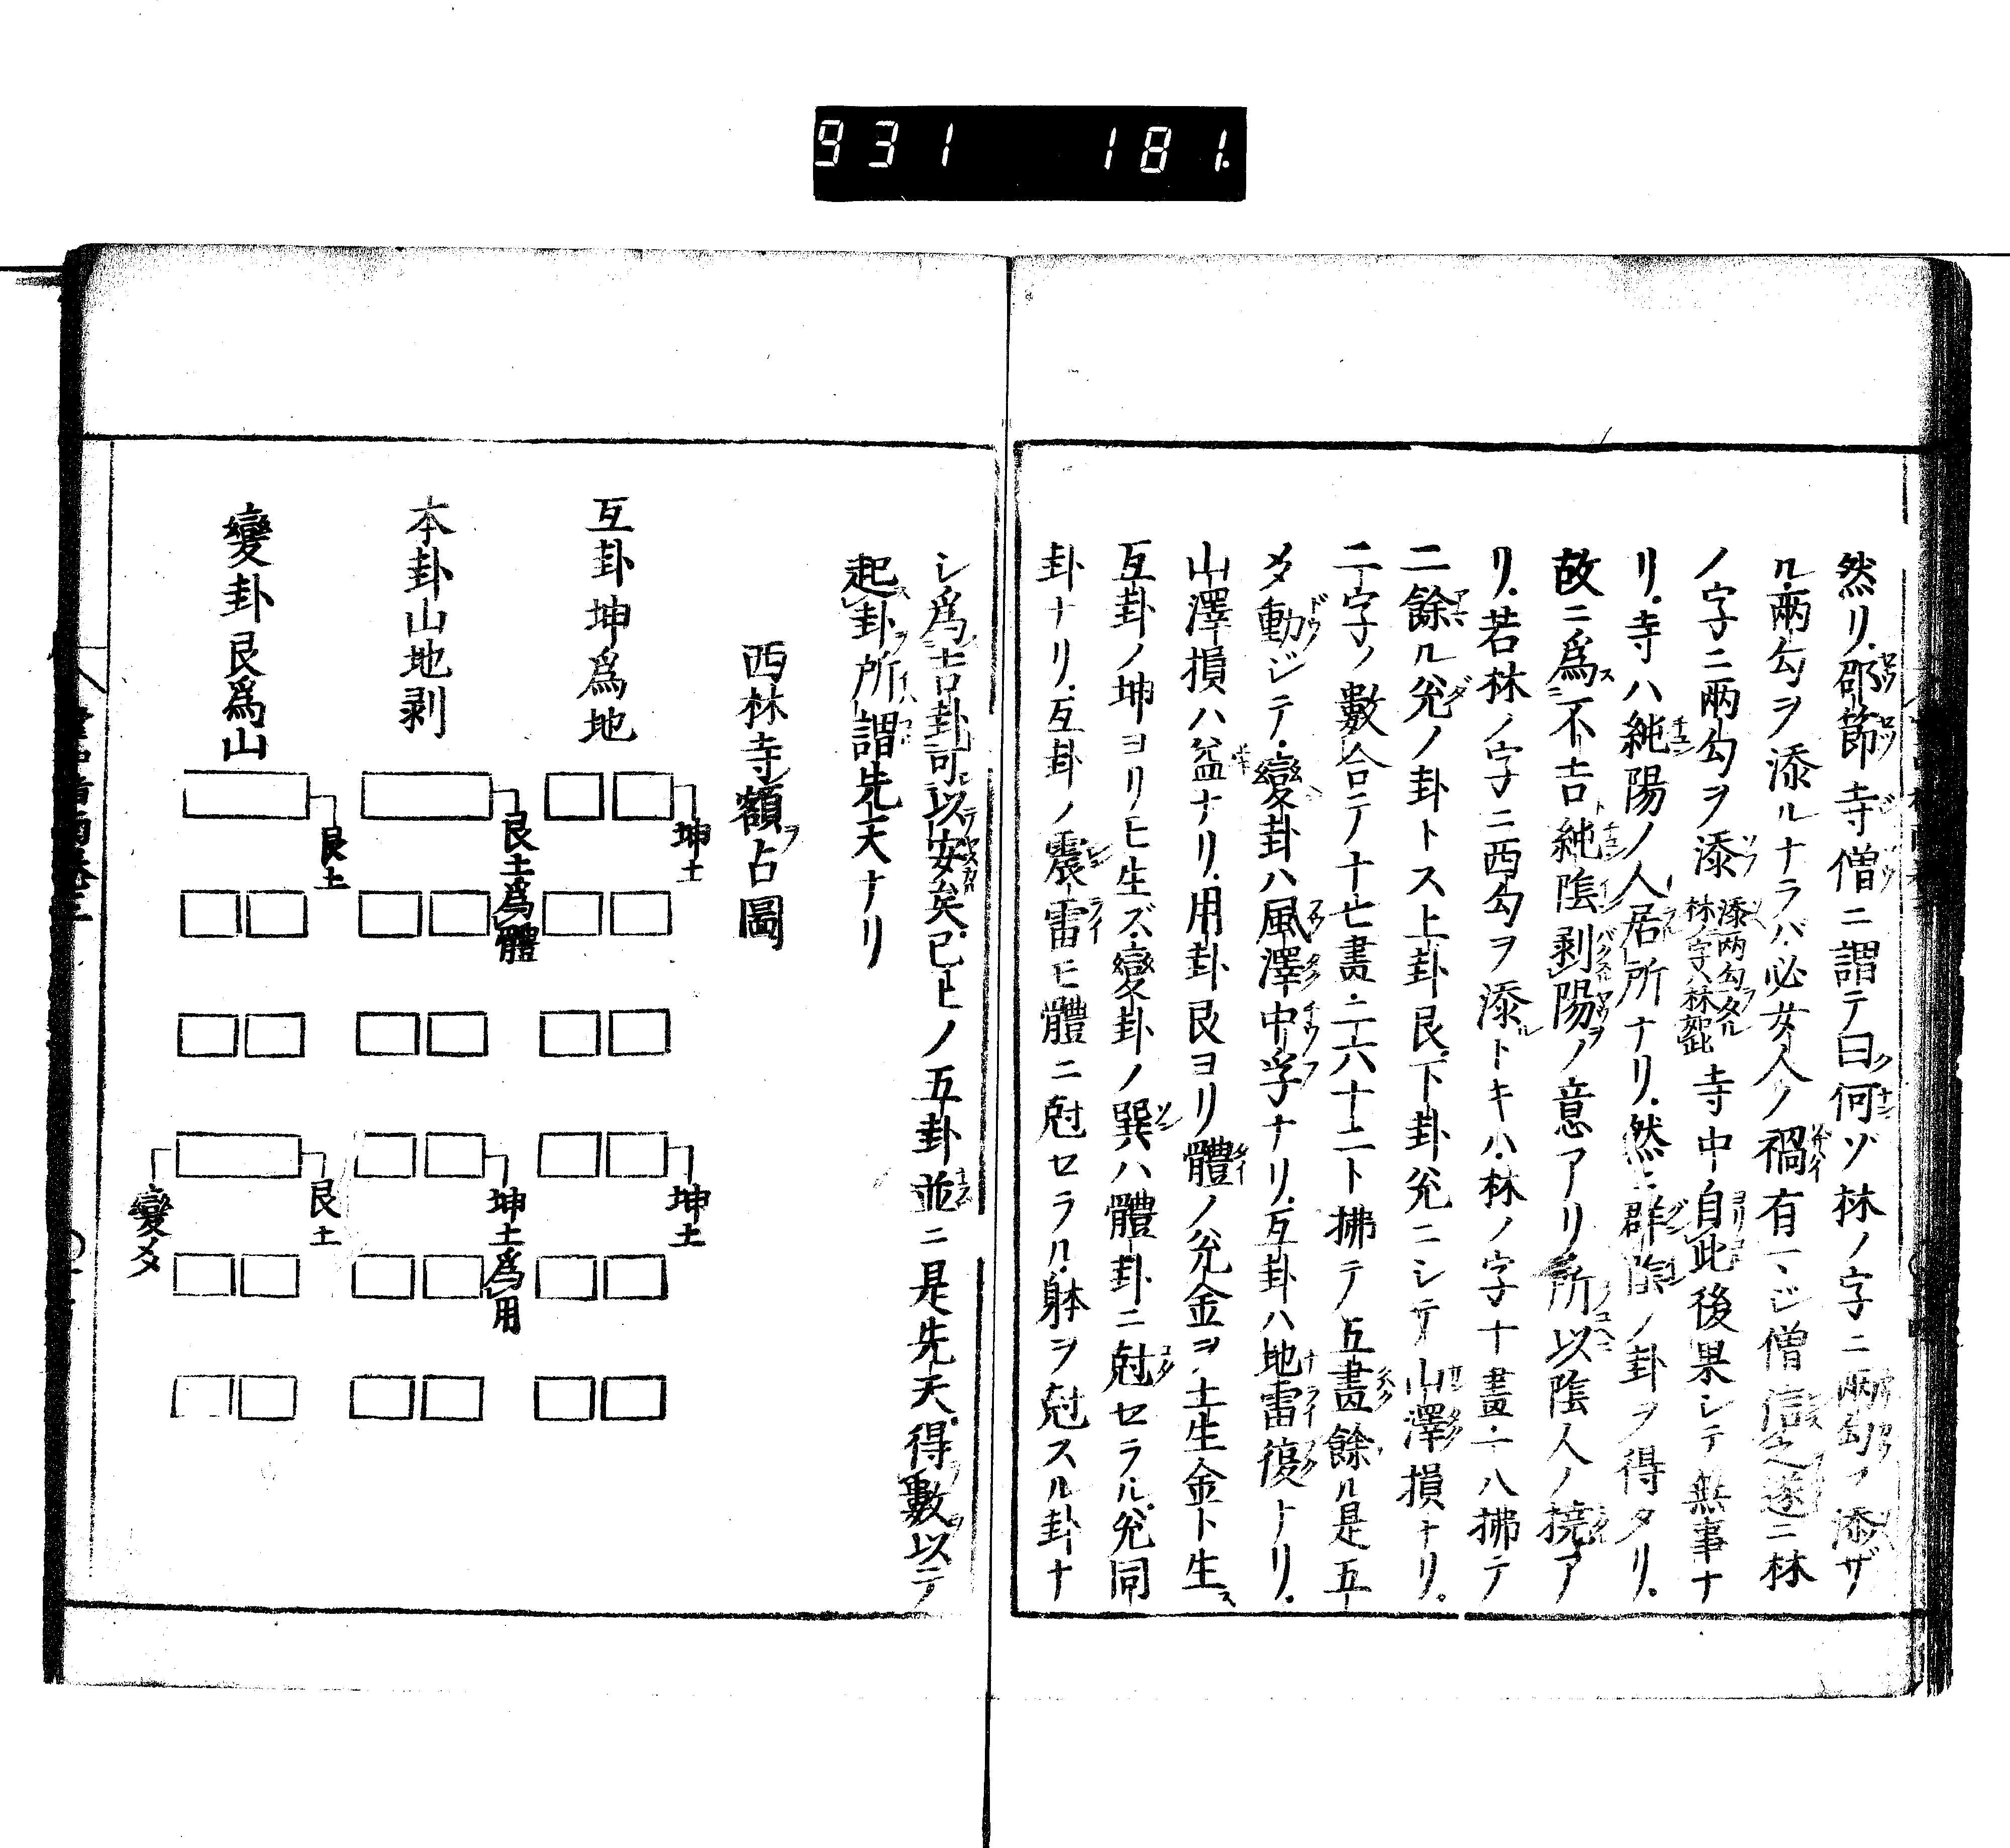 931 181
然リ邵節寺僧ニ謂テ曰何ゾ林ノ字ニ兩勾ヲ添ザ
ル兩勾ヲ添ルナラバ必女人ノ禍有ージ僧信之遂ニ林
ノ字ニ兩勾ヲ添 添兩勾タル林ノ字ハ林如此 寺中自此後果シテ無事ナ
リ寺ハ純陽ノ人居所ナリ然ニ群陰ノ卦ヲ得タリ
故ニ為不吉純陰剥陽ノ意アリ所以陰人ノ撓ア
リ若林ノ字ニ西勾ヲ添ルトキハ林ノ字十畫一八拂テ
二餘ル兊ノ卦トス上卦艮下卦兊ニシテ山澤損ナリ
二字ノ數合テ十七畫二六十二ト拂テ五畫餘ル是五
メタ動ジテ變卦ハ風澤中孚ナリ互卦ハ地雷復トナリ
山澤損ハ益ナリ用卦艮ヨリ體ノ兊金ヲ土生金ト生ス
互卦ノ坤ヨリモ生ズ變卦ノ巽ハ體卦ニ尅セラル兊同
卦ナリ互卦ノ震雷モ體ニ尅セラル躰ヲ尅スル卦ナ
シ為吉卦可以安矣已上ノ五卦並ニ是先天得數以テ
起卦所謂先天ナリ
西林寺額占圖
互卦坤爲地
坤土
坤土
本卦山地剥
艮土爲體
坤土爲用
變卦艮爲山
艮土
艮土
變メタ